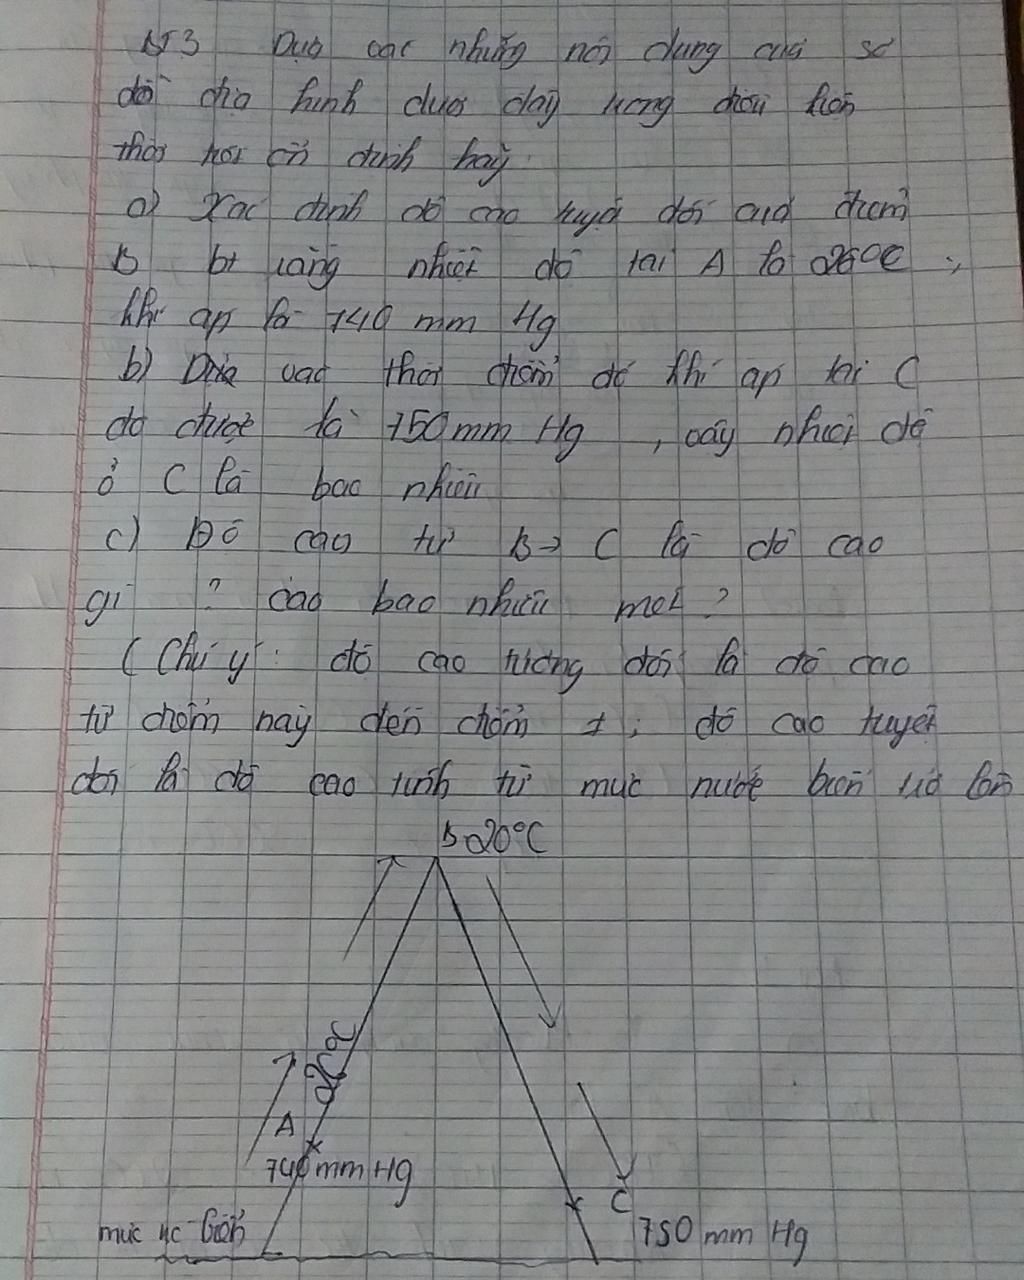 BT3 Dựa các những nội dung của sơ
đồ cho hình dưới đây trong điều kiện
thời tiết ổn định hãy.
a) Xác định độ cao tuyệt đối của điểm
B bt rằng nhiệt độ tại A là 26°C ,
khí áp là 740 mm Hg
b) vào thời điểm đó khí áp tại C
đo được là 750 mm Hg , vậy nhiệt độ
ở C là bao nhiêu
c) Độ cao từ B → C là độ cao
gì ? cao bao nhiêu mét ?
( Chú ý : độ cao tương đối là độ cao
từ điểm này đến điểm ; độ cao tuyệt
đối là độ cao tính từ mực nước biển trở lên
B 20°C
26°C
A
740 mm Hg
C
mực nc biển
750 mm Hg